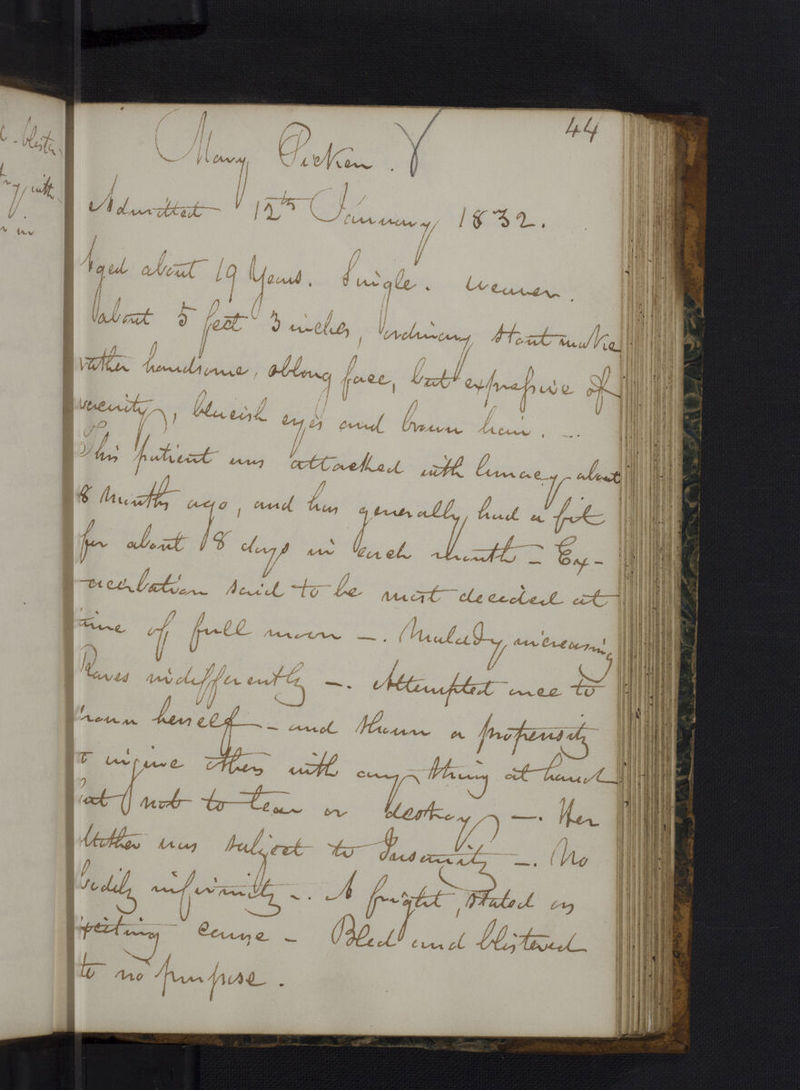 44
Mary Picken.
Admitted 12th January 1832.
Aged about 19 Years. Single. weaver.
about 5 feet 3 inches, ordinary stout make
rather handsome, oblong face, but expressive of
vacuity, blueish eyes and brown hair. -
This patient was attacked with lunacy about
8 Months ago, and has generally had a fit
for about 8 days in each month - Ex-
acerbation said to be most decided at
time of full moon -. Malady increasing
Raves indifferently -. Attempted once to
drown herself - and shown a propensity
to injure others with any thing at hand
but not to tear or destroy -. Her
Mother was subject to Insanity -. No
bodily infirmity -. A fright, stated as
exciting cause - Bled and blistered
to no purpose.